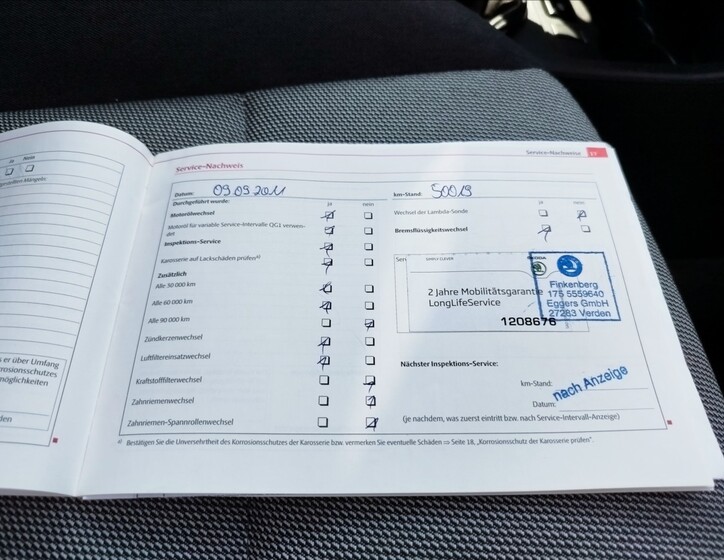 Ja Nein
Service-Nachweise 17
Service-Nachweis
Datum: 09.09.2011
km-Stand: 50019
Durchgeführt wurde: ja nein
ja nein
Motorölwechsel
Motoröl für variable Service-Intervalle QG1 verwen-
det
Inspektions-Service
Karosserie auf Lackschäden prüfen a)
Zusätzlich
Alle 30 000 km
Alle 60 000 km
Alle 90 000 km
Zündkerzenwechsel
Luftfiltereinsatzwechsel
Kraftstofffilterwechsel
Zahnriemenwechsel
Zahnriemen-Spannrollenwechsel
Wechsel der Lambda-Sonde
Bremsflüssigkeitswechsel
SIMPLY CLEVER
SKODA
2 Jahre Mobilitätsgarantie
LongLifeService
1208676
Finkenberg
175 5559640
Eggers GmbH
27283 Verden
Nächster Inspektions-Service:
km-Stand:
nach Anzeige
Datum:
(je nachdem, was zuerst eintritt bzw. nach Service-Intervall-Anzeige)
a) Bestätigen Sie die Unversehrtheit des Korrosionsschutzes der Karosserie bzw. vermerken Sie eventuelle Schäden ⇒ Seite 18, „Korrosionsschutz der Karosserie prüfen".
er über Umfang
rosionsschutzes
möglichkeiten